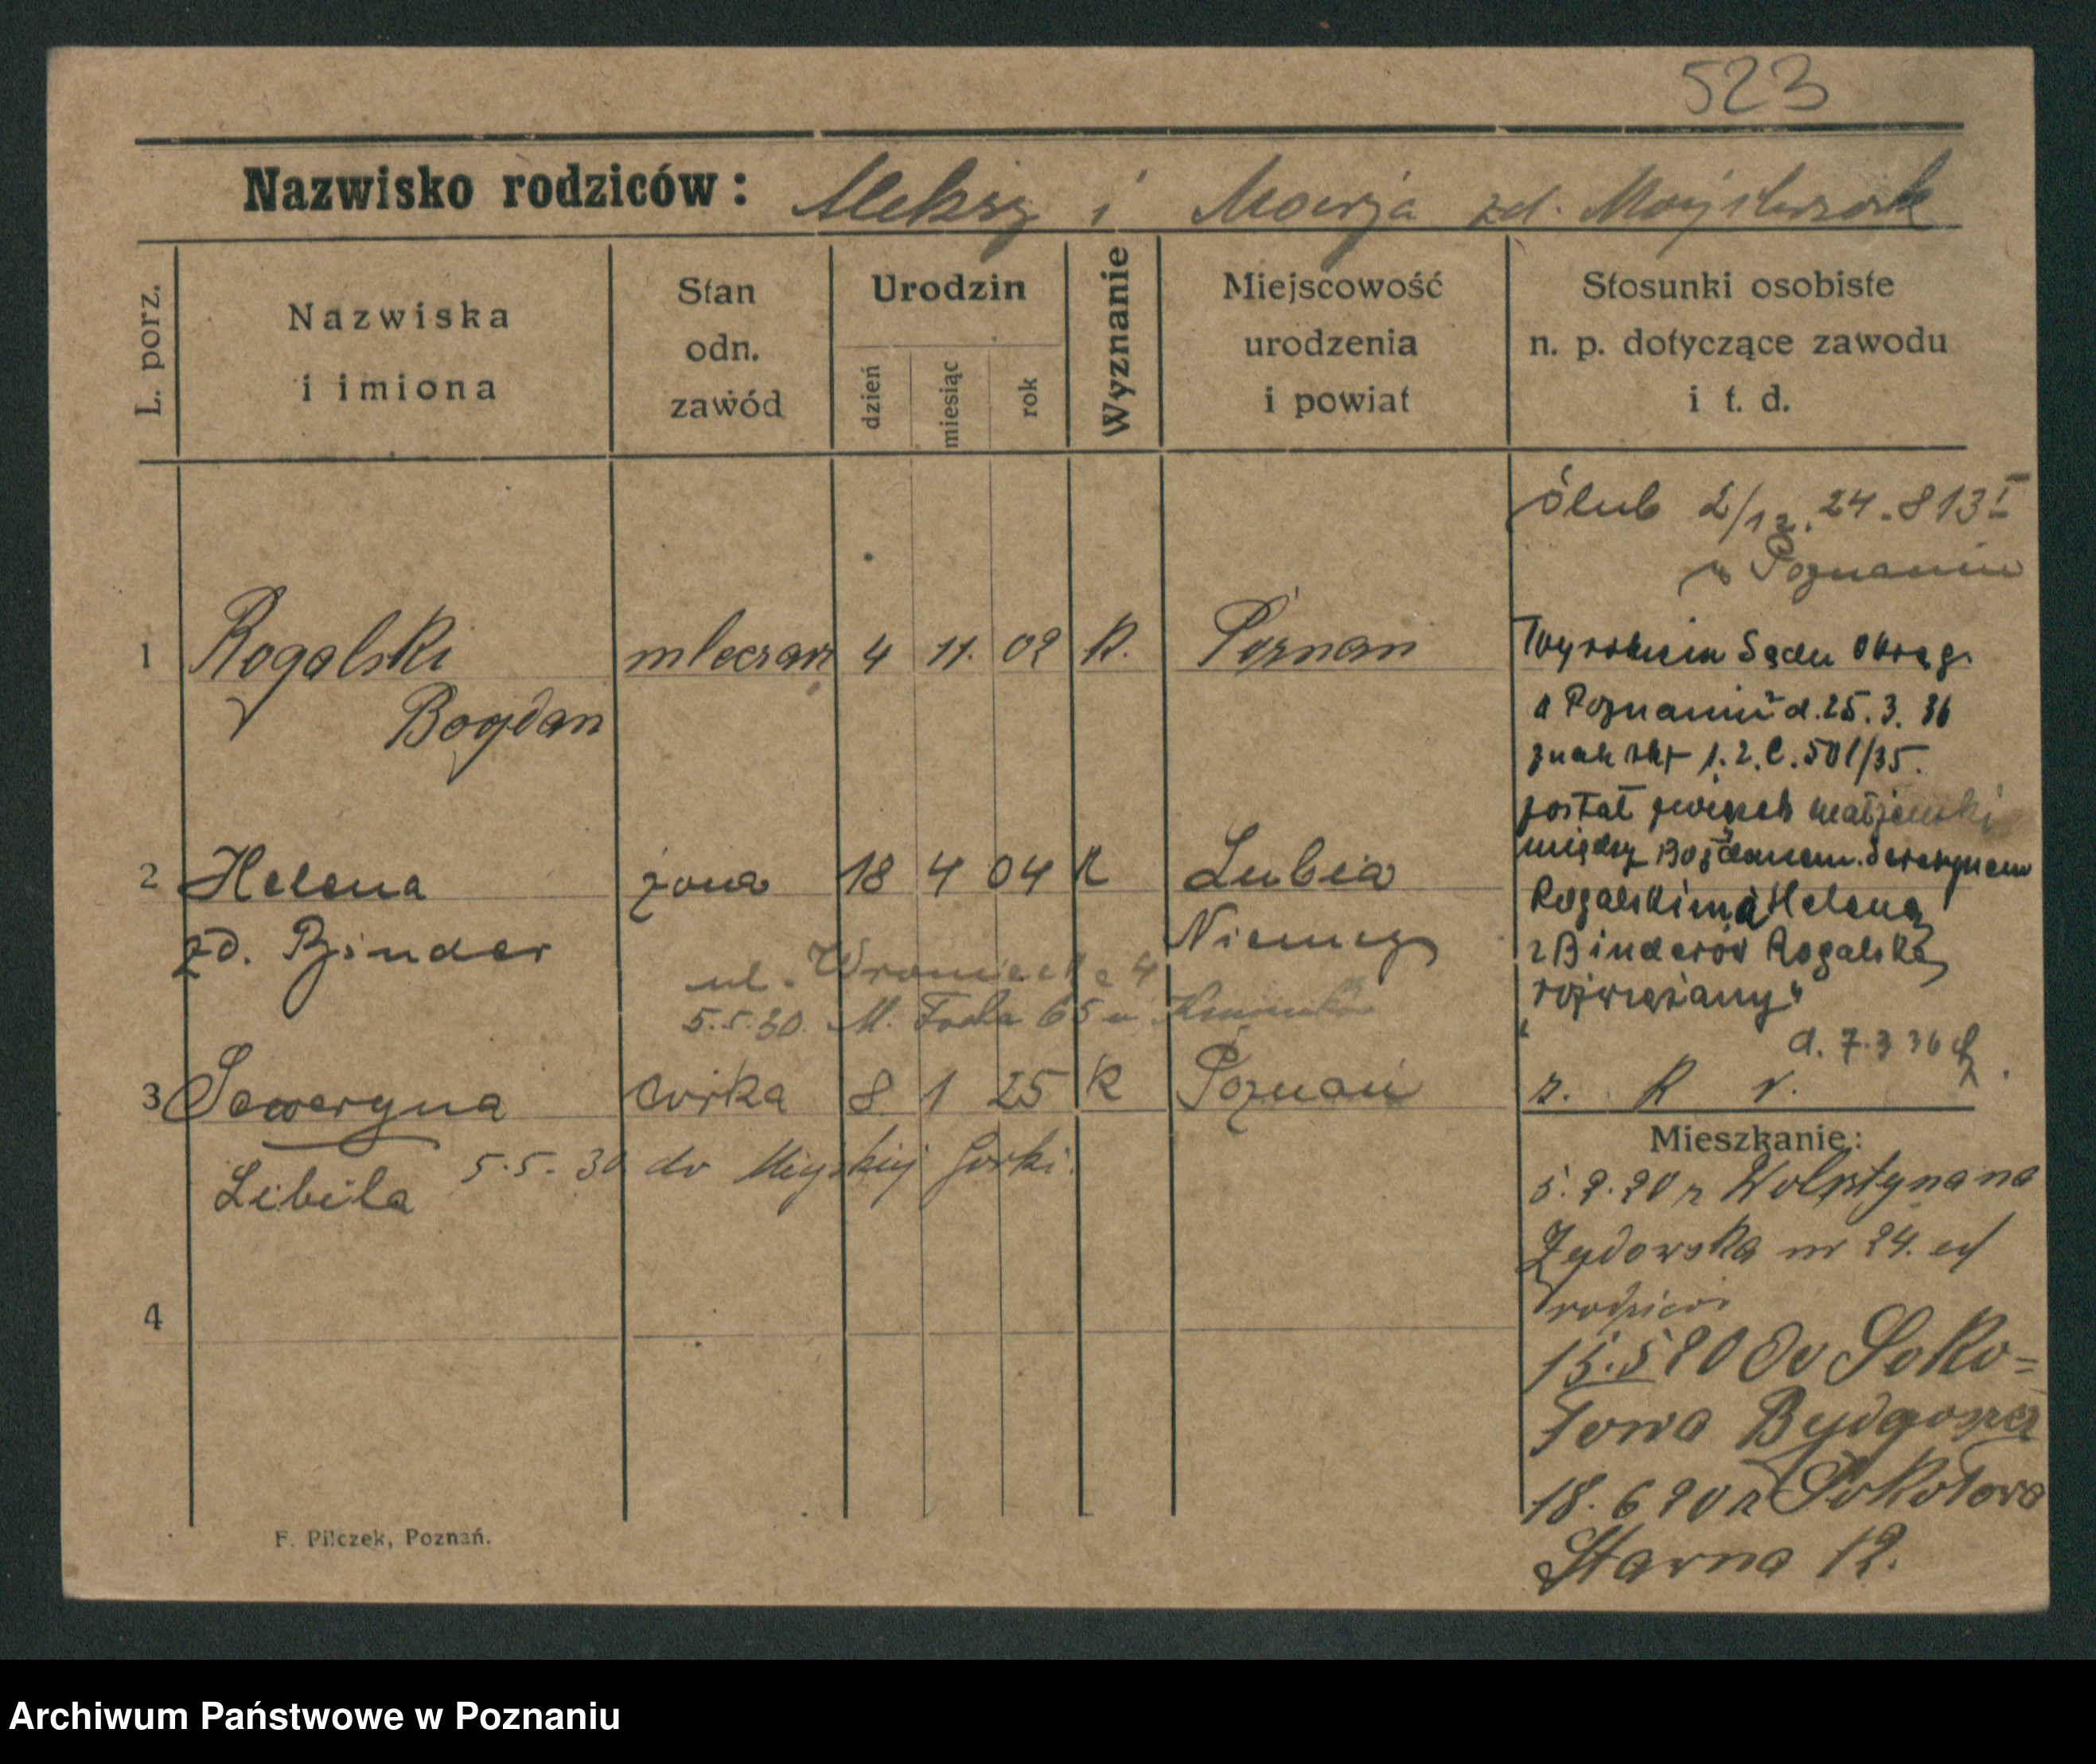 523
Nazwisko rodziców: Aleksy i Marja zd.
L. porz.
Nazwiska
i imiona
Stan
odn.
zawód
Urodzin
dzień
miesiąc
rok
Wyznanie
Miejscowość
urodzenia
i powiat
Stosunki osobiste
n. p. dotyczące zawodu
i t. d.
ślub 2/12. 24. 813 I
w Poznaniu
1 Rogalski mleczarz 4 11. 02 R. Poznań
Bogdan
Wyrokiem Sądu Okręg.
w Poznaniu z d. 25. 3. 36
znak akt 1. 2. C. 501/35.
został związek małżeński
między Bogdanem Sewerynem
Rogalskim a Heleną
z Binderów Rogalską
rozwiązany"
d. 7.3 36
r. R v.
2 Helena żona 18 4 04 R Lubia
zd. Binder Niemcy
ul. Wroniecka 4
5.5.30. M. Focha 65 u
3 Seweryna córka 8 1 25 R Poznań
Libila
5.5.30 do Miejskiej Górki.
4
Mieszkanie:
5. 2. 20 z Wolsztyna na
Żydowska nr 24. u
rodziców
15. 5 20 do Soko=
łowa Bydgoszcz
18. 6 20 z Sokołowa
Starna 12.
F. Pilczek, Poznań.
Archiwum Państwowe w Poznaniu